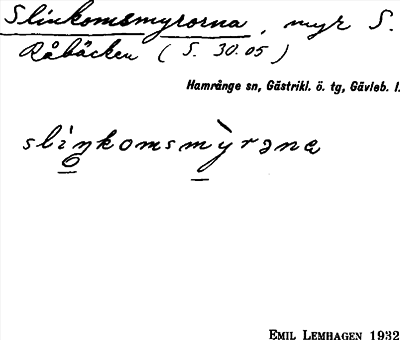 Slinkomsmyrorna, myr S.
Råbäcken (S. 30.05)
Hamrånge sn, Gästrikl. ö. tg, Gävleb. l.
slìŋkomsmỳrənæ
EMIL LEMHAGEN 1932